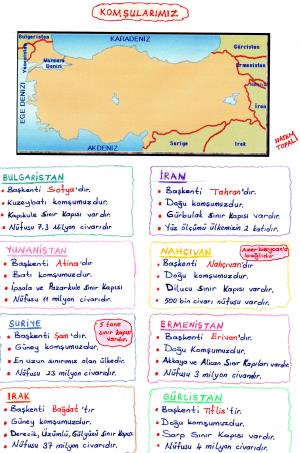 KOMŞULARIMIZ
Bulgaristan
KARADENİZ
Gürcistan
Yunanistan
Marmara
Denizi
Ermenistan
İran
EGE DENİZİ
AKDENİZ
Suriye
Irak
HATAM
TOPALİ
BULGARİSTAN
• Başkenti Sofya'dır.
• Kuzeybatı komşumuzdur.
• Kapıkule Sınır Kapısı vardır
• Nüfusu 7.3 Milyon civarıdır
İRAN
• Başkenti Tahran'dır.
• Doğu komşumuzdur.
• Gürbulak Sınır Kapısı vardır.
• Yüz ölçümü ülkemizin 2 katıdır.
YUNANİSTAN
• Başkenti Atina'dır
• Batı komşumuzdur.
• İpsala ve Pazarkule Sınır Kapısı
• Nüfusu 11 milyon civarıdır.
NAHÇIVAN
Azerbaycan'a
bağlıdır
• Başkenti Nahçıvan'dır
• Doğu komşumuzdur.
• Dilucu Sınır Kapısı vardır.
• 500 bin civarı nüfusu vardır.
SURİYE
5 tane
sınır kapısı
vardır.
• Başkenti Şam'dır.
• Güney komşumuzdur.
• En uzun sınırımız olan ülkedir.
• Nüfusu 23 milyon civarıdır.
ERMENİSTAN
• Başkenti Erivan'dır.
• Doğu Komşumuzdur.
• Akkaya ve Alican Sınır Kapıları vardır
• Nüfusu 3 milyon civarıdır.
IRAK
• Başkenti Bağdat'tır
• Güney komşumuzdur.
• Derecik, Üzümlü, Gülyazı Sınır Kapısı
• Nüfusu 37 milyon civarıdır.
GÜRCİSTAN
• Başkenti Tiflis'tir.
• Doğu komşumuzdur.
• Sarp Sınır Kapısı vardır.
• Nüfusu 4 milyon civarıdır.